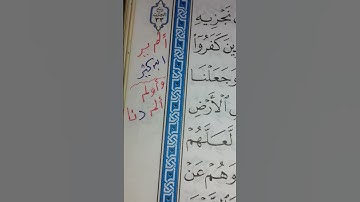 نَجْزِيهِ
ينَ كَفَرُوٓا۟
وَجَعَلْنَا
ٱلْأَرْضِ
لَّعَلَّهُمْ
وَهُمْ عَنْ
ألم ير
ابن كثير
وأولم
ألم دنا